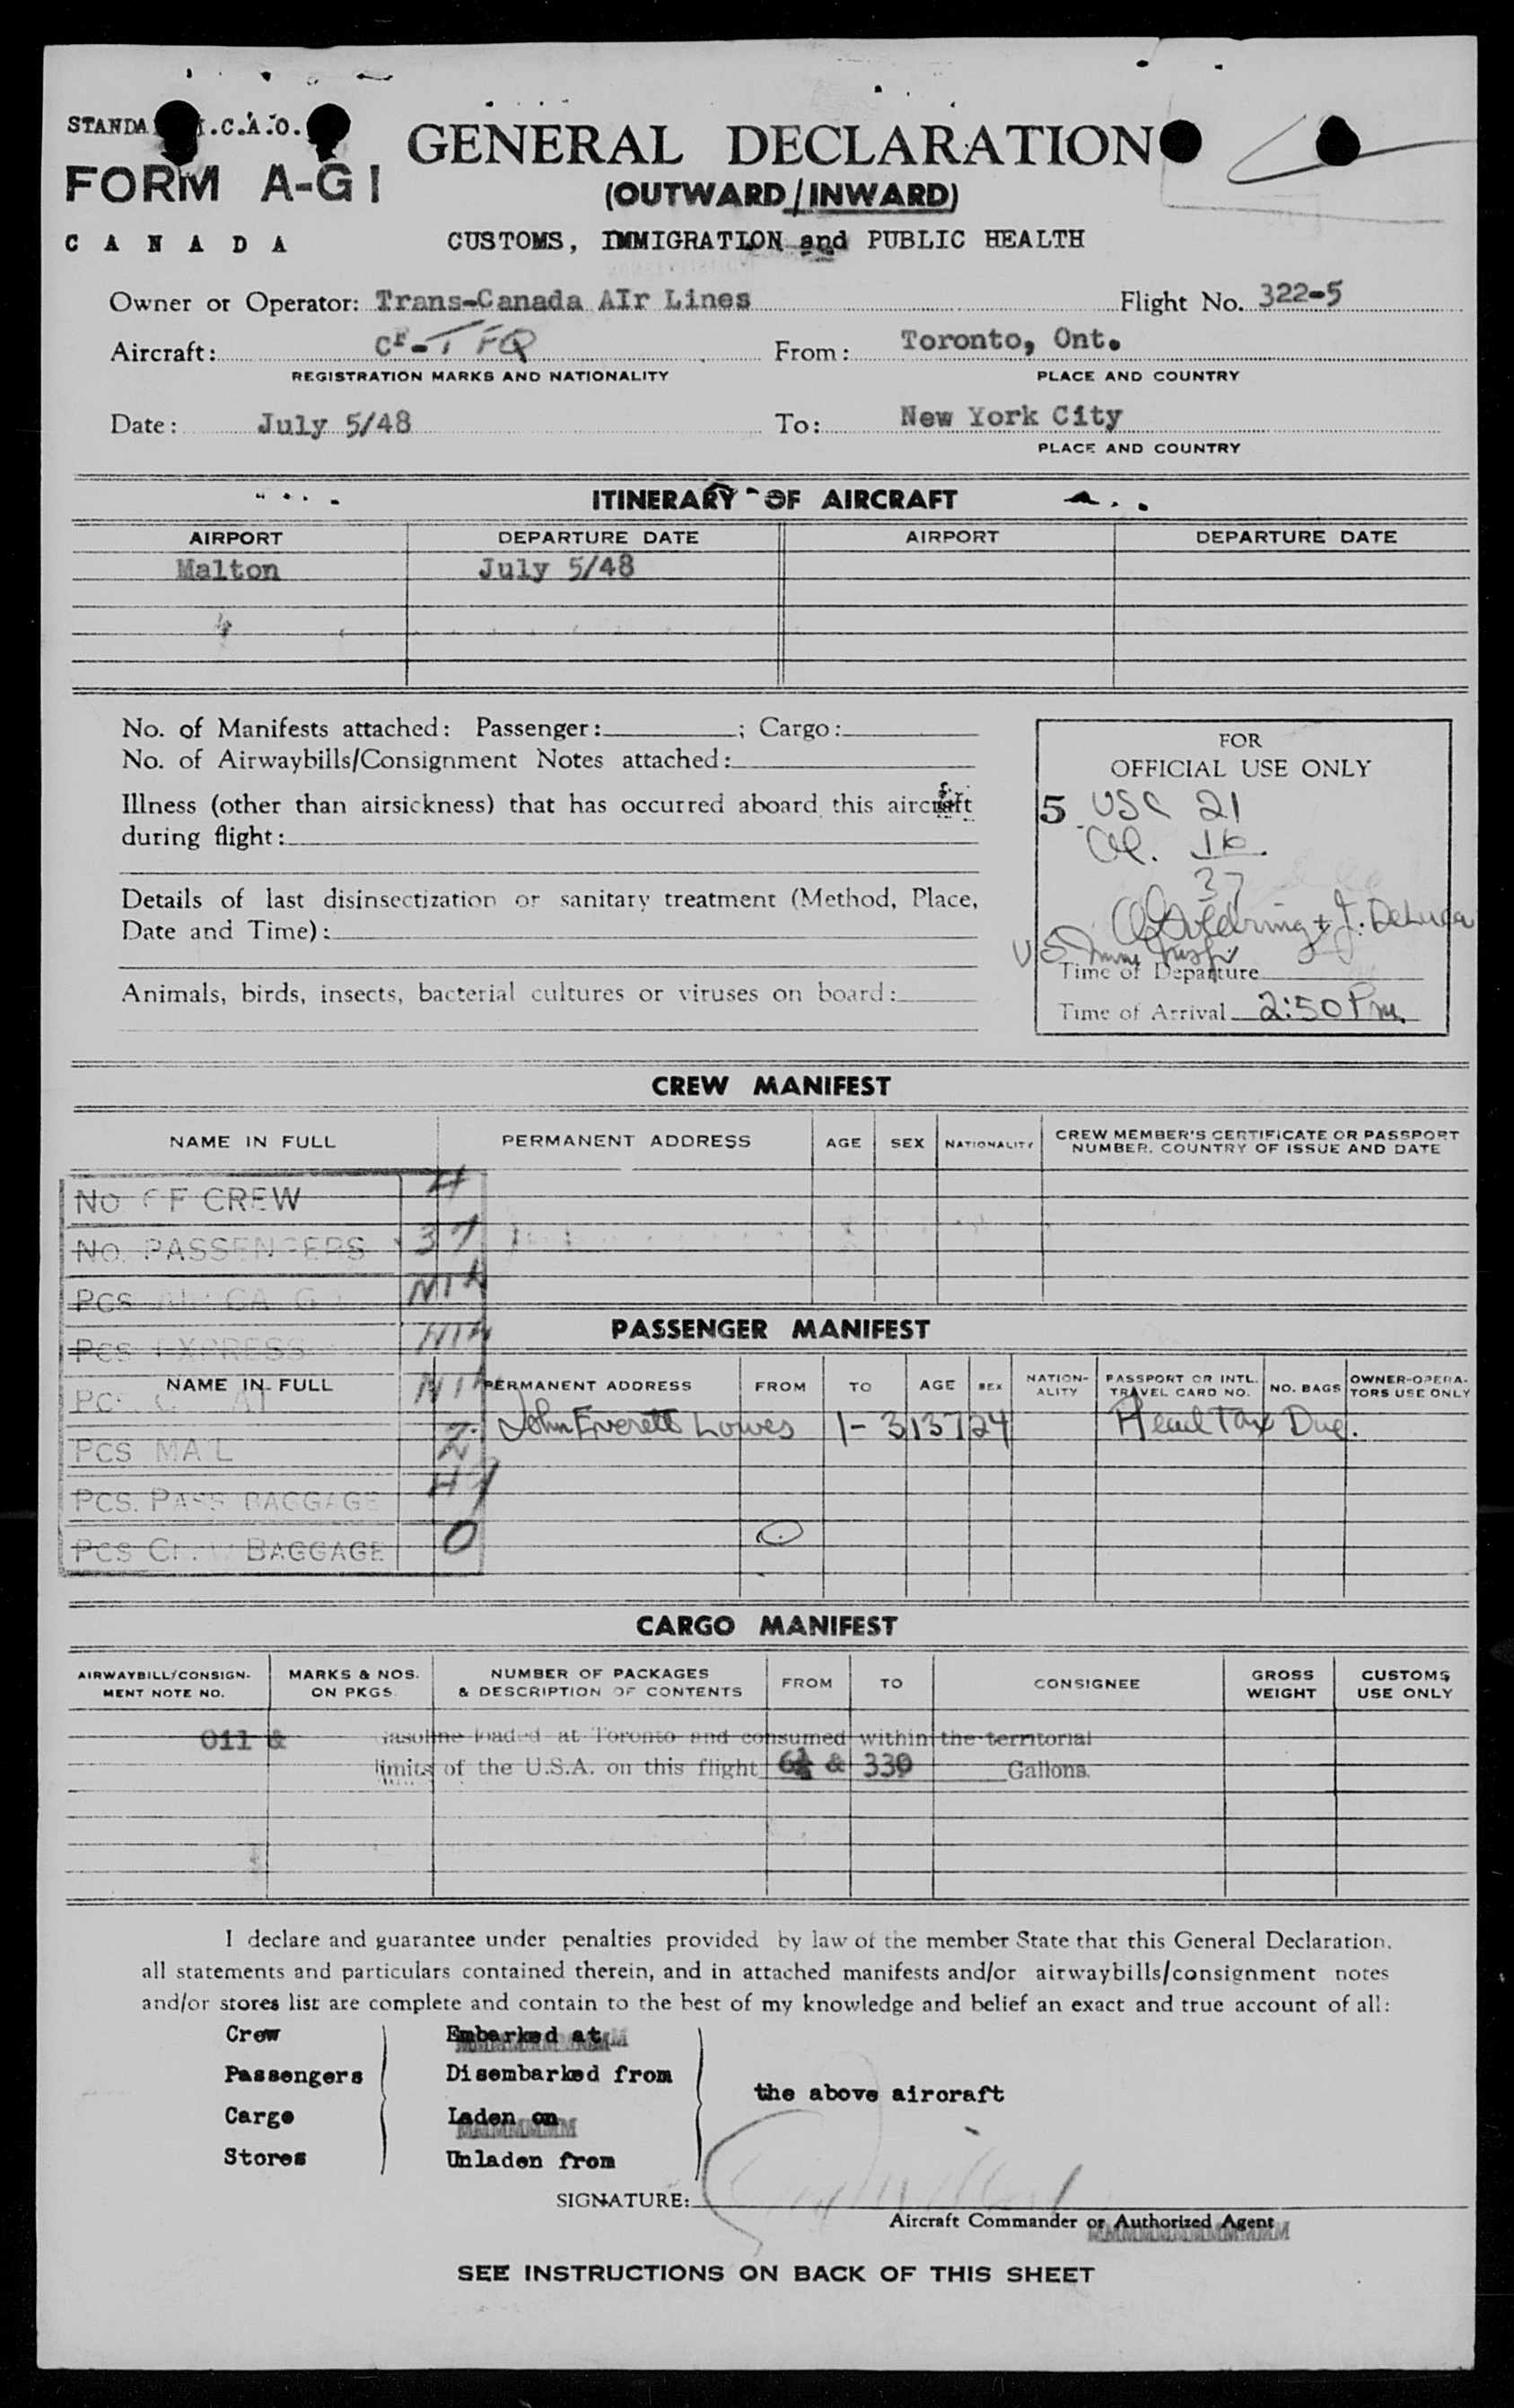 STANDA I.C.A.O.
FORM A-G1
CANADA
GENERAL DECLARATION
(OUTWARD/INWARD)
CUSTOMS, IMMIGRATION and PUBLIC HEALTH
Owner or Operator: Trans-Canada AIr Lines Flight No. 322-5
Aircraft: CF-TFQ From: Toronto, Ont.
REGISTRATION MARKS AND NATIONALITY PLACE AND COUNTRY
Date: July 5/48 To: New York City
PLACE AND COUNTRY
ITINERARY OF AIRCRAFT
AIRPORT DEPARTURE DATE AIRPORT DEPARTURE DATE
Malton July 5/48
No. of Manifests attached: Passenger: ; Cargo:
No. of Airwaybills/Consignment Notes attached:
Illness (other than airsickness) that has occurred aboard this aircraft
during flight:
Details of last disinsectization or sanitary treatment (Method, Place,
Date and Time):
Animals, birds, insects, bacterial cultures or viruses on board:
FOR
OFFICIAL USE ONLY
5 USC 21
Al. 16
37
+ J. DeLuca
U.S. Imm
Time of Departure
Time of Arrival 2:50 Pm
CREW MANIFEST
NAME IN FULL PERMANENT ADDRESS AGE SEX NATIONALITY CREW MEMBER'S CERTIFICATE OR PASSPORT
NUMBER, COUNTRY OF ISSUE AND DATE
NO OF CREW 4
NO. PASSENGERS 37
PCS AIR CARGO NIL
PCS EXPRESS NIL
PASSENGER MANIFEST
NAME IN FULL PERMANENT ADDRESS FROM TO AGE SEX NATION-
ALITY PASSPORT OR INTL.
TRAVEL CARD NO. NO. BAGS OWNER-OPERA-
TORS USE ONLY
NIL
John Everett Lowes 1-313724 Head Tax Due.
PCS MAIL 2
PCS. PASS BAGGAGE 47
PCS CREW BAGGAGE 0
CARGO MANIFEST
AIRWAYBILL/CONSIGN-
MENT NOTE NO. MARKS & NOS.
ON PKGS. NUMBER OF PACKAGES
& DESCRIPTION OF CONTENTS FROM TO CONSIGNEE GROSS
WEIGHT CUSTOMS
USE ONLY
Oil & Gasoline loaded at Toronto and consumed within the territorial
limits of the U.S.A. on this flight 6½ & 330 Gallons.
I declare and guarantee under penalties provided by law of the member State that this General Declaration,
all statements and particulars contained therein, and in attached manifests and/or airwaybills/consignment notes
and/or stores list are complete and contain to the best of my knowledge and belief an exact and true account of all:
Crew Embarked at
Passengers Disembarked from
the above aircraft
Cargo Laden on
Stores Unladen from
SIGNATURE:
Aircraft Commander or Authorized Agent
SEE INSTRUCTIONS ON BACK OF THIS SHEET